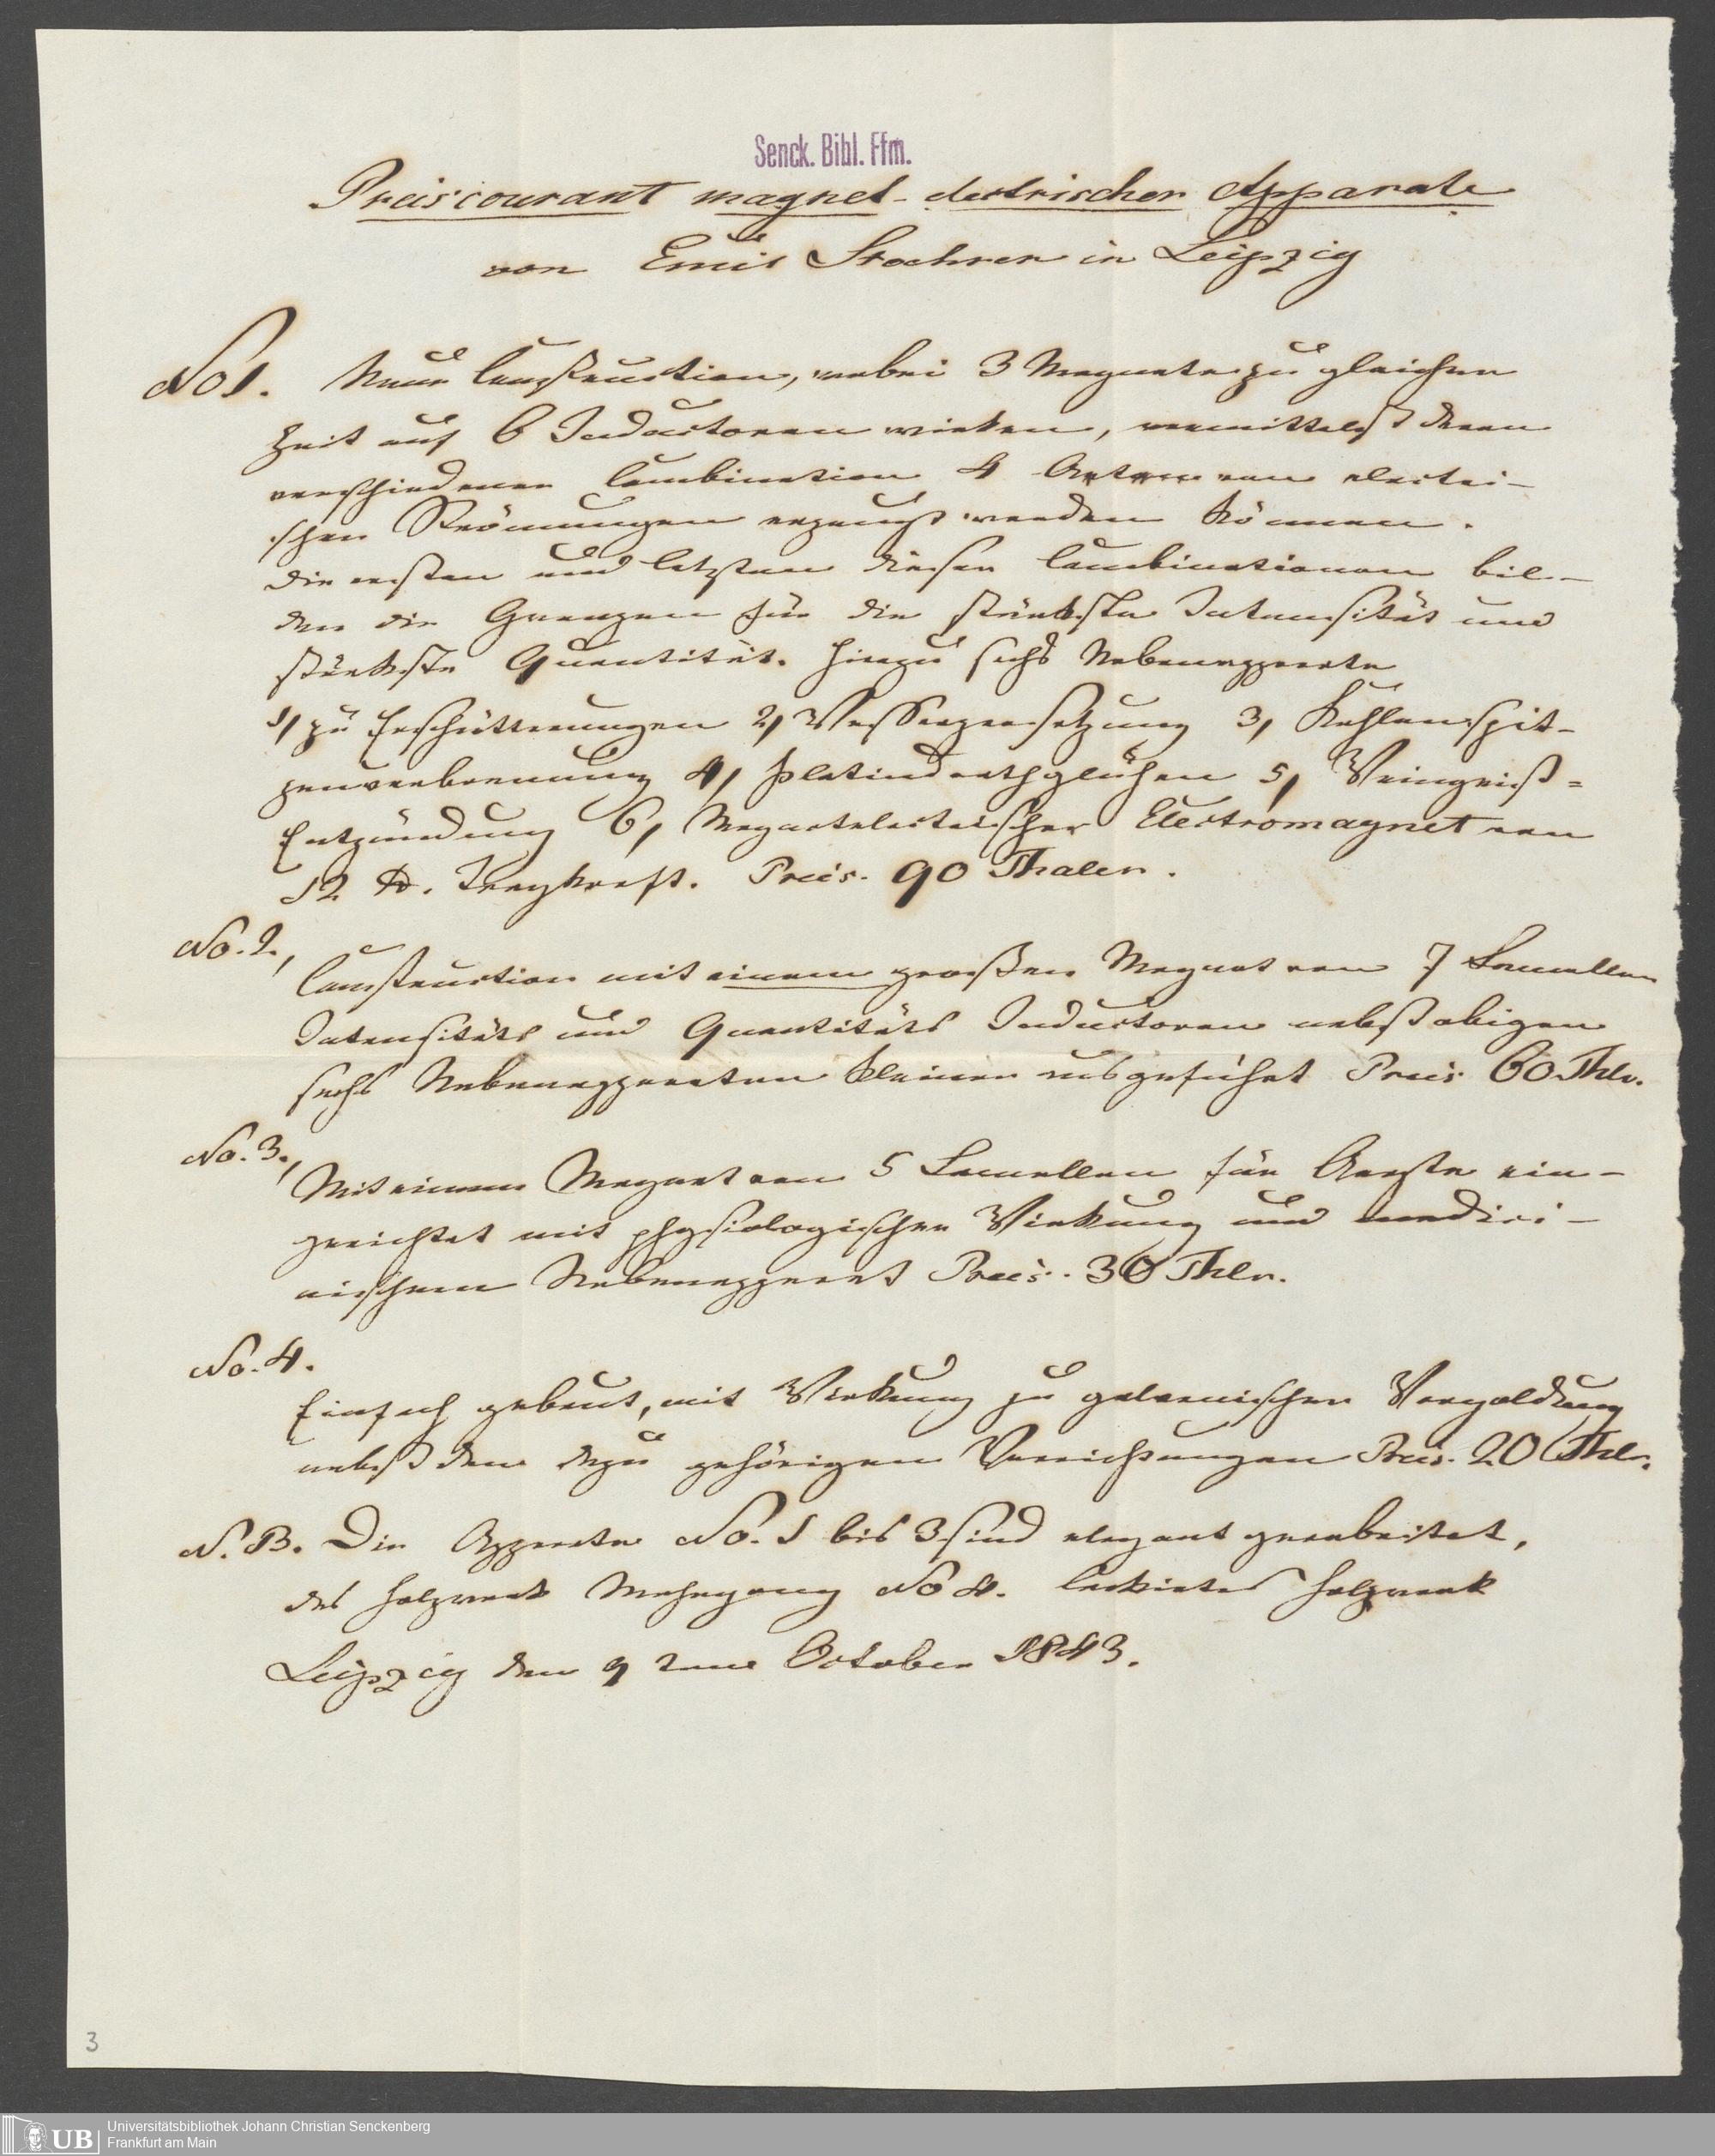 Senck. Bibl. Ffm.
Preiscourant magnet-electrischer Apparate
von Emil Stoehrer in Leipzig
No 1. Neue Construction, wobei 3 Magnete zu gleicher
Zeit auf 6 Inductoren wirken, vermittelst deren
verschiedener Combination 4 Arten von electri-
schen Strömungen erzeugt werden können.
Die ersten und letzten dieser Combinationen bil-
den die Grenzen für die stärkste Intensität und
stärkste Quantität. Hierzu sechs Nebenapparate
1, zu Erschütterungen 2, Wasserzersetzung 3, Kohlenspit-
zenverbrennung 4, Platindrathglühen 5, Weingeist=
Entzündung 6, Magnetelectrischer Electromagnet von
12 ℔. Tragkraft. Preis. 90 Thaler.
No. 2,
Construction mit einem großen Magnet von 7 Lamellen
Intensitäts und Quantitäts Inductoren nebst obigen
sechs Nebenapparaten kleiner ausgeführt Preis 60 Thlr.
No. 3.,
Mit einem Magnet von 5 Lamellen für Aerzte ein-
gerichtet mit physiologischer Wirkung und medici-
nischem Nebenapparat Preis. 30 Thlr.
No. 4.
Einfach gebaut, mit Wirkung zu galvanischer Vergoldung
nebst den dazu gehörigen Vorrichtungen Preis. 20 Thlr.
N. B. Die Apparate No. 1 bis 3 sind elegant gearbeitet,
das Holzwerk Mahagony No 4. lackirtes Holzwerk
Leipzig den 9 October 1843.
3
UB
Universitätsbibliothek Johann Christian Senckenberg
Frankfurt am Main